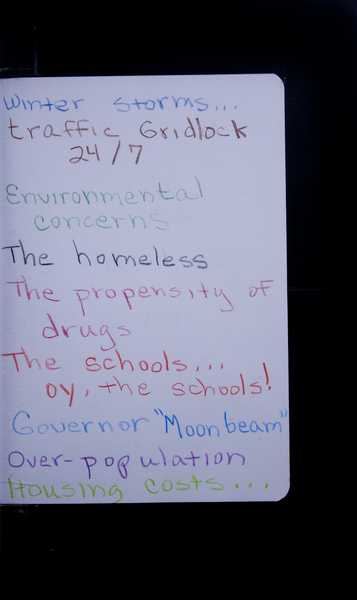 Winter storms...
traffic Gridlock
24/7
Environmental
concerns
The homeless
The propensity of
drugs
The schools...
oy, the schools!
Governor "Moonbeam"
Over-population
Housing costs...